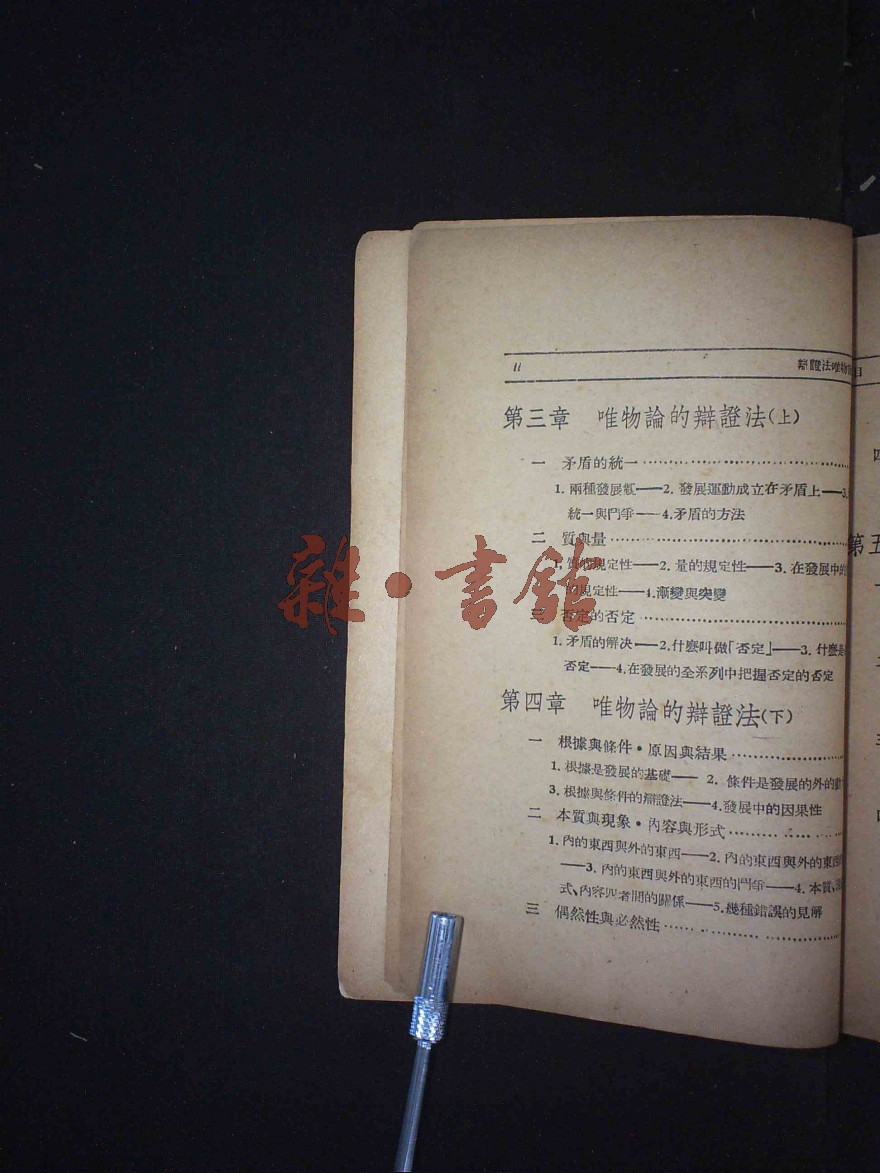 II
辯證法唯物
目
第三章　唯物論的辯證法(上)
一　矛盾的統一
1. 兩種發展觀——2. 發展運動成立在矛盾上——3.
統一與鬥爭——4.矛盾的方法
二　質與量
1. 質的規定性——2. 量的規定性——3. 在發展中的
的規定性——4.漸變與突變
三　否定的否定
1. 矛盾的解决——2.什麼叫做「否定」——3. 什麼是
否定——4.在發展的全系列中把握否定的否定
第四章　唯物論的辯證法(下)
一　根據與條件・原因與結果
1. 根據是發展的基礎——2. 條件是發展的外的
3. 根據與條件的辯證法——4.發展中的因果性
二　本質與現象・內容與形式
1. 內的東西與外的東西——2. 內的東西與外的東西
——3. 內的東西與外的東西的鬥爭——4. 本質、
式、內容四者間的關係——5.幾種錯誤的見解
三　偶然性與必然性
四
第五
一
二
三
四
雜・書館